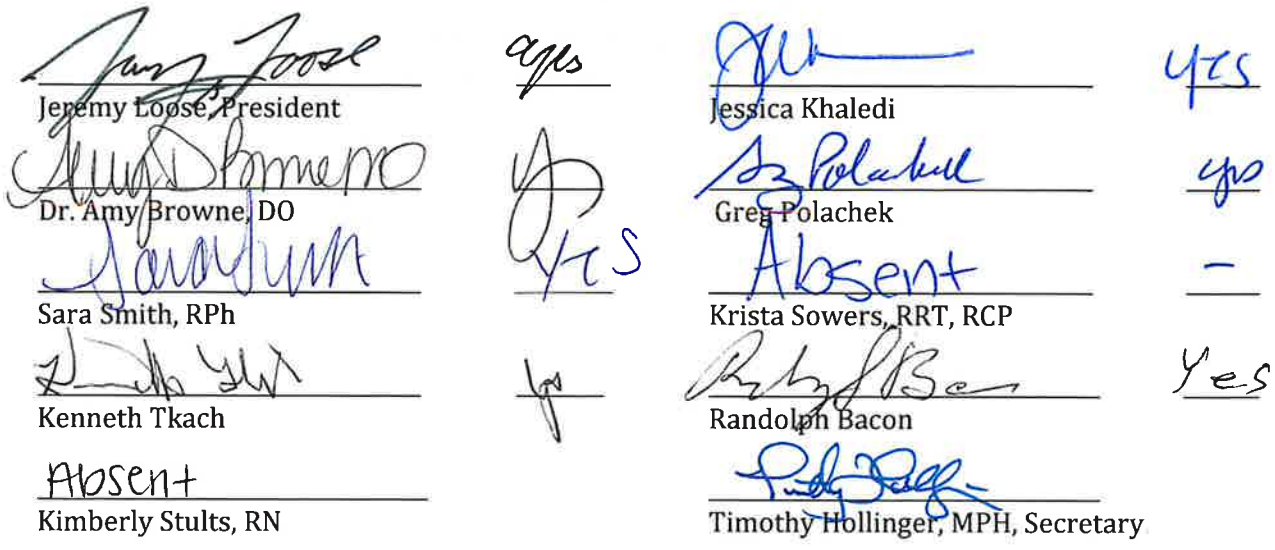 Jeremy Loose yes
Jeremy Loose, President
Yes
Dr. Amy Browne, DO
Yes
Sara Smith, RPh
yes
Kenneth Tkach
Absent
Kimberly Stults, RN
YES
Jessica Khaledi
Greg Polachek yes
Greg Polachek
Absent –
Krista Sowers, RRT, RCP
Yes
Randolph Bacon
Timothy Hollinger, MPH, Secretary